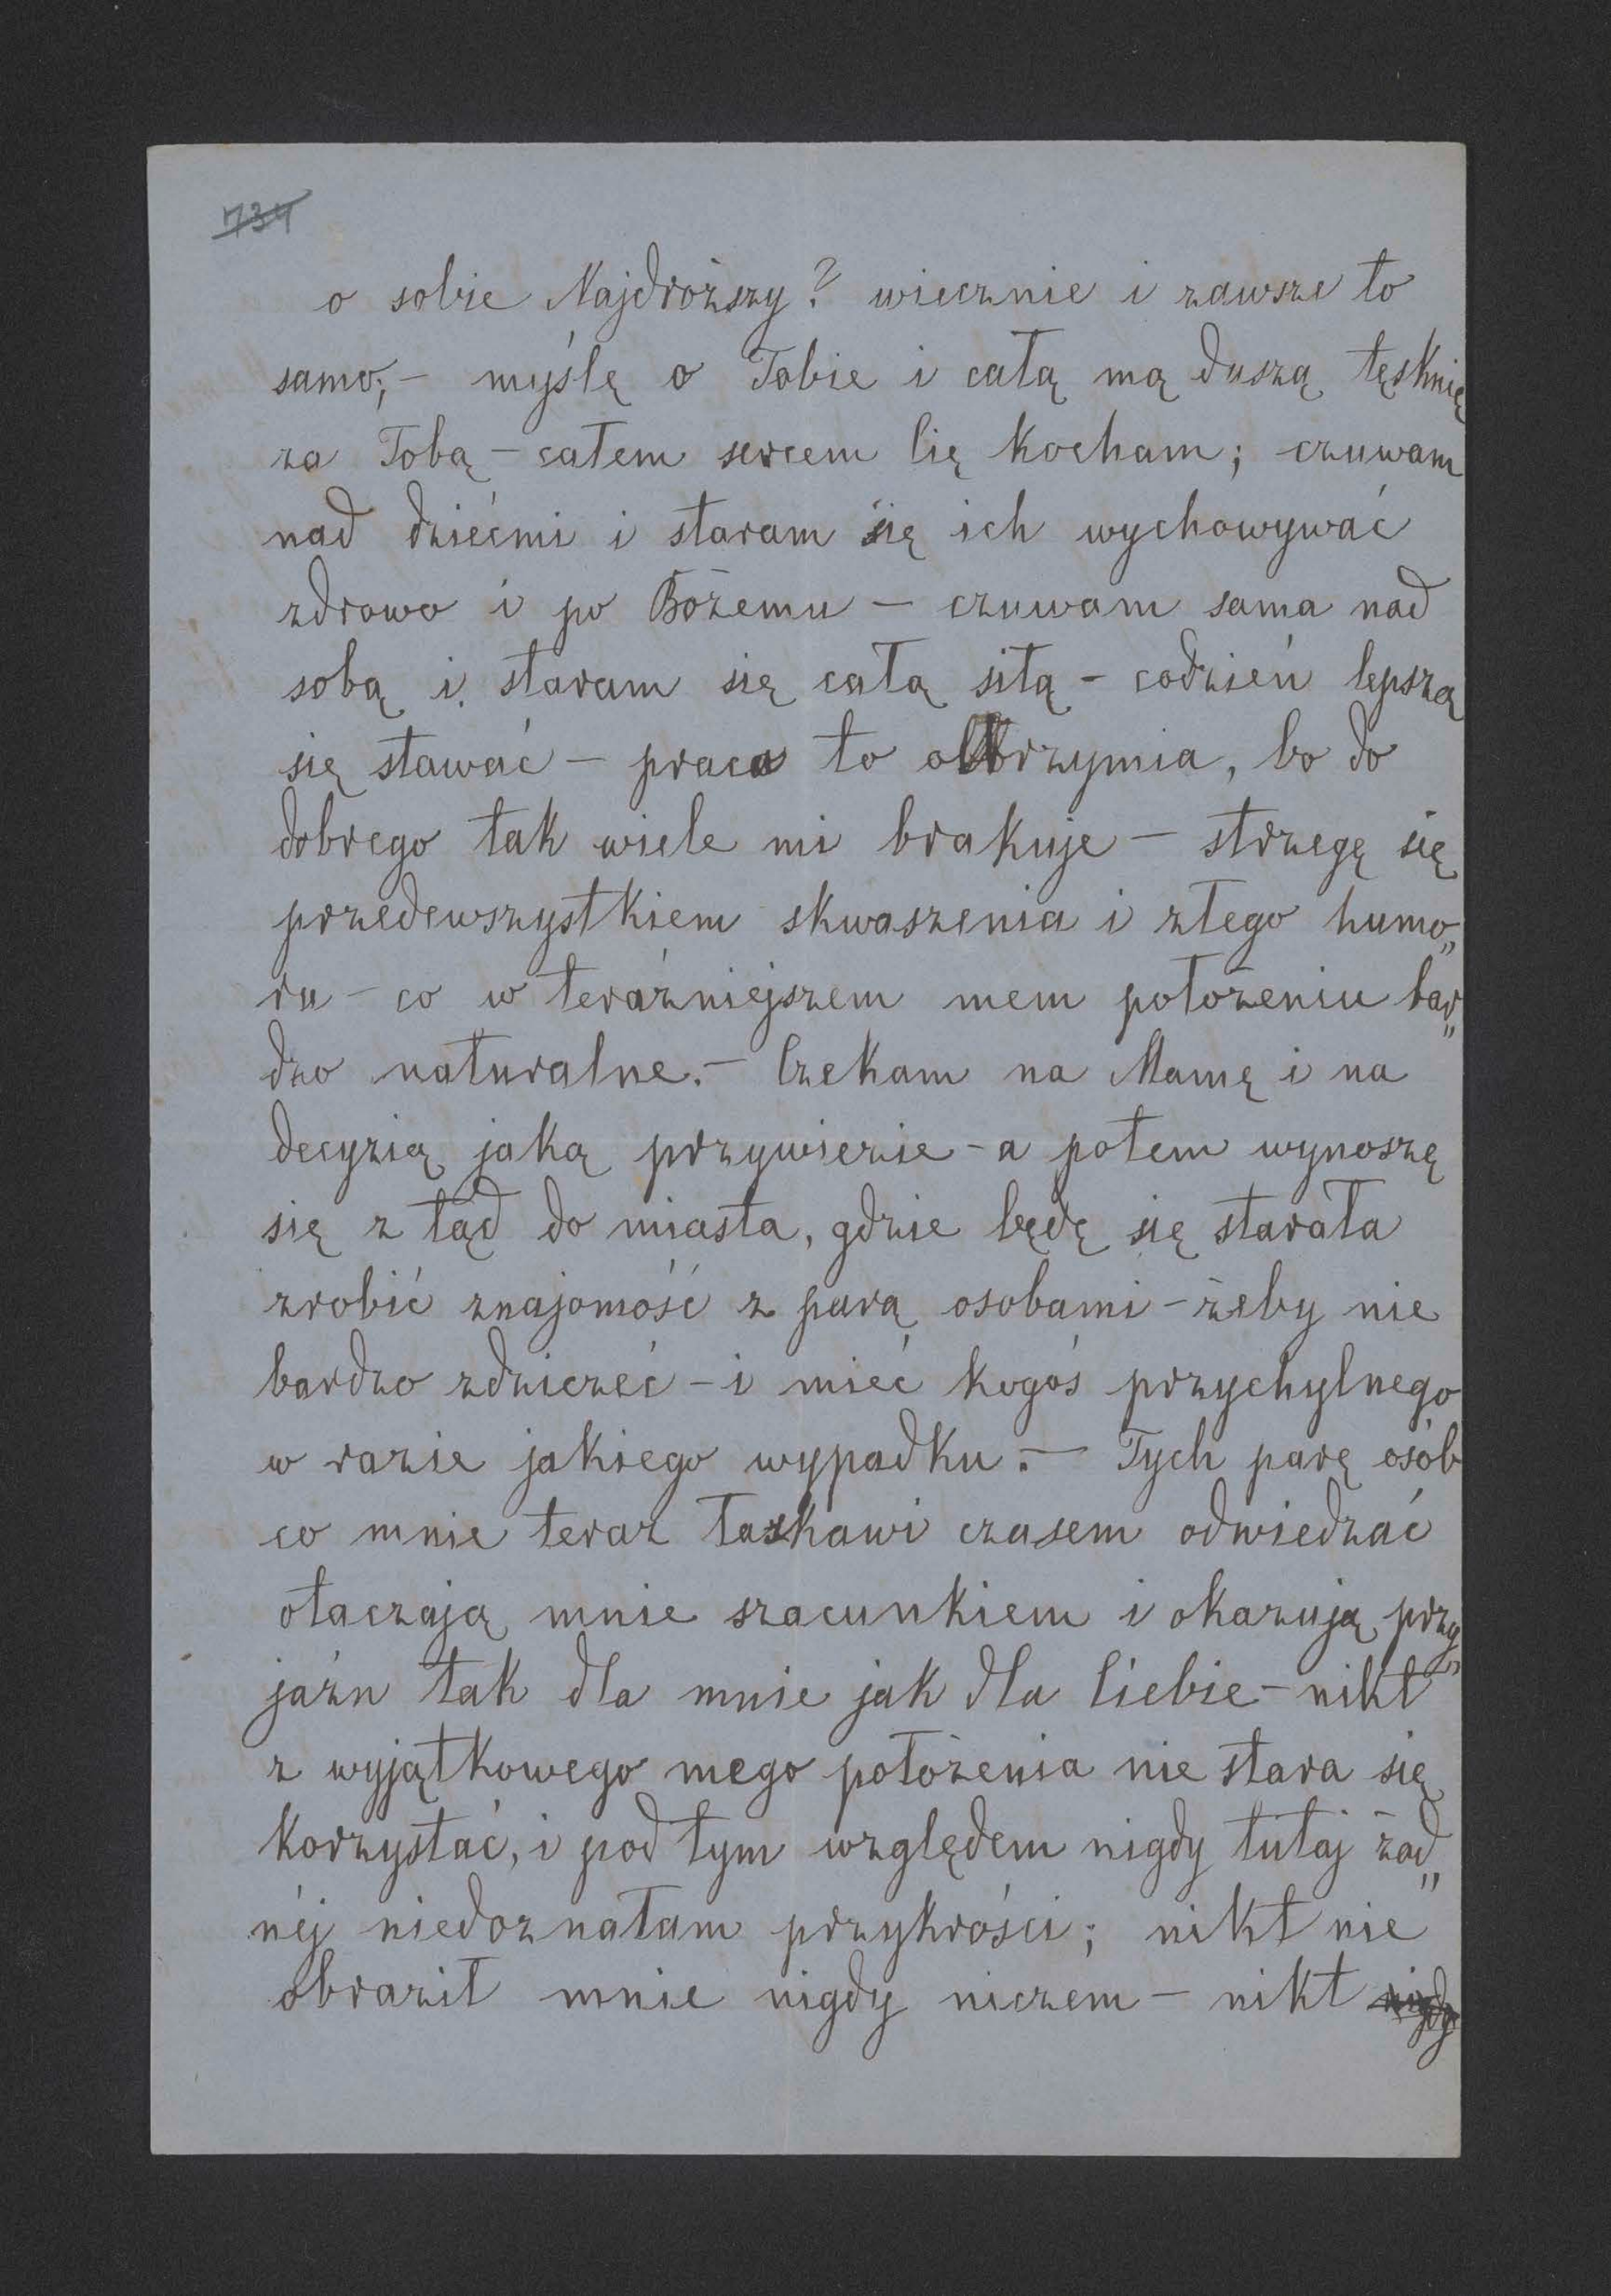 734
o sobie Najdroższy? wiecznie i zawsze to
samo; – myślę o Tobie i całą mą duszą tęsknię
za Tobą – całem sercem Cię kocham; czuwam
nad dziećmi i staram się ich wychowywać
zdrowo i po Bożemu – czuwam sama nad
sobą i staram się całą siłą – codzień lepszą
się stawać – praca to olbrzymia, bo do
dobrego tak wiele mi brakuje – strzegę się
przedewszystkiem skwaszenia i złego humo„
ru – co w teraźniejszem mem położeniu bar„
dzo naturalne. – Czekam na Mamę i na
decyzią jaką przywiezie – a potem wynoszę
się z tąd do miasta, gdzie będę się starała
zrobić znajomość z parą osobami – żeby nie
bardzo zdziczeć – i mieć kogoś przychylnego
w razie jakiego wypadku. – Tych parę osób
co mnie teraz łaskawi czasem odwiedzać
otaczają mnie szacunkiem i okazują przy„
jaźn tak dla mnie jak dla Ciebie – nikt
z wyjątkowego mego położenia nie stara się
korzystać, i pod tym względem nigdy tutaj żad„
néj niedoznałam przykrości; nikt nie
obraził mnie nigdy niczem – nikt nigdy